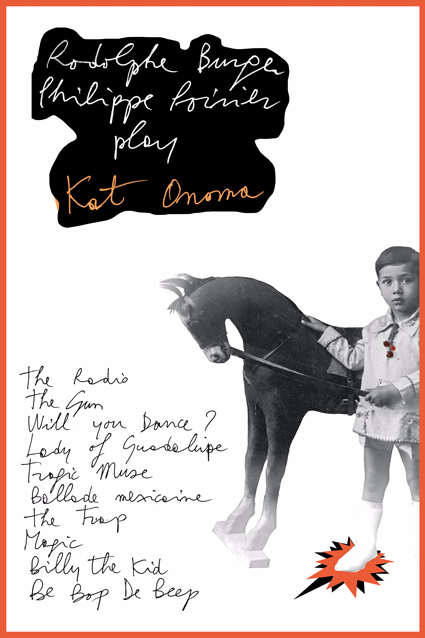 Rodolphe Burger
Philippe Poirier
play
Kat Onoma
The Radio
The Gun
Will you Dance ?
Lady of Guadalupe
Tragic Muse
Ballade mexicaine
The Trap
Magic
Billy the Kid
Be Bop De Beep